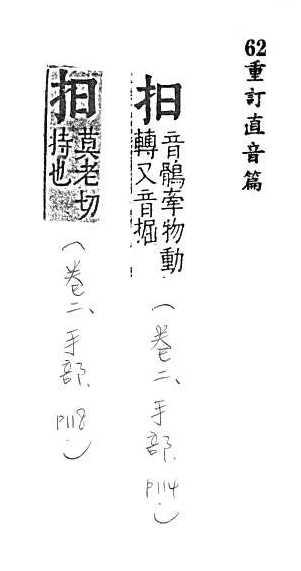 62重訂直音篇
抇
音鶻牽物動
轉又音掘
（卷二、手部、P114）
抇
莫老切
持也
（卷二、手部、P118）